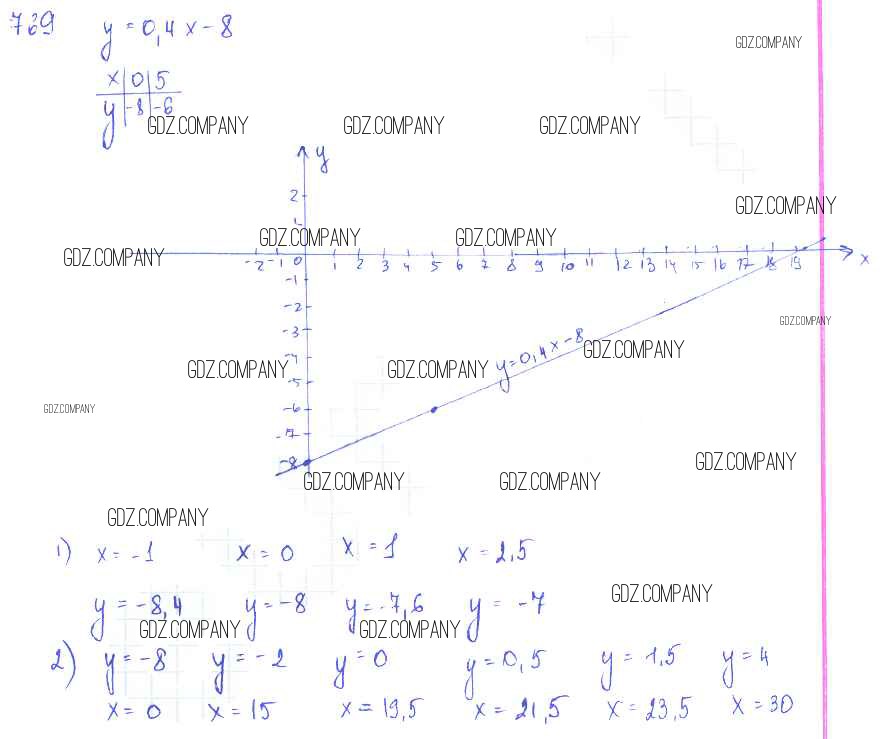 769 y = 0,4x - 8
GDZ.COMPANY
x | 0 | 5
y | -8 | -6
GDZ.COMPANY GDZ.COMPANY GDZ.COMPANY
y
2
GDZ.COMPANY
1
GDZ.COMPANY GDZ.COMPANY
GDZ.COMPANY
-2 -1 0 1 2 3 4 5 6 7 8 9 10 11 12 13 14 15 16 17 18 19 x
-1
-2
GDZ.COMPANY
-3
y = 0,4x - 8 GDZ.COMPANY
-4
GDZ.COMPANY GDZ.COMPANY
-5
GDZ.COMPANY -6
-7
-8 GDZ.COMPANY
GDZ.COMPANY GDZ.COMPANY
GDZ.COMPANY
1) x = -1 x = 0 x = 1 x = 2,5
GDZ.COMPANY
y = -8,4 y = -8 y = -7,6 y = -7
GDZ.COMPANY GDZ.COMPANY
2) y = -8 y = -2 y = 0 y = 0,5 y = 1,5 y = 4
x = 0 x = 15 x = 19,5 x = 21,5 x = 23,5 x = 30